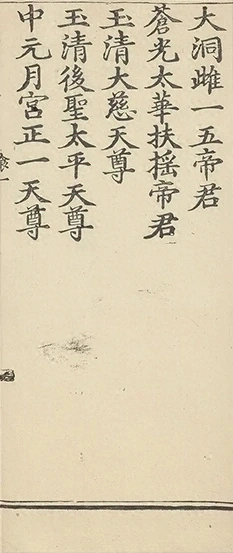 大洞雌一五帝君
蒼光太華扶揺帝君
玉清大慈天尊
玉清後聖太平天尊
中元月宮正一天尊